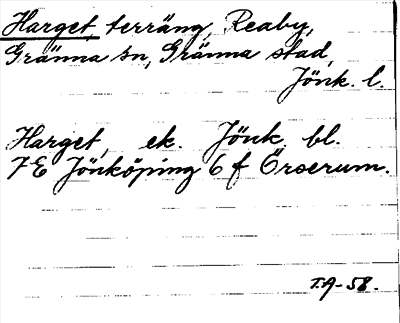 Harget, terräng, Reaby,
Gränna sn, Gränna stad,
Jönk. l.
Harget, ek. Jönk. bl.
7E Jönköping 6 f Örserum.
T.A-58.